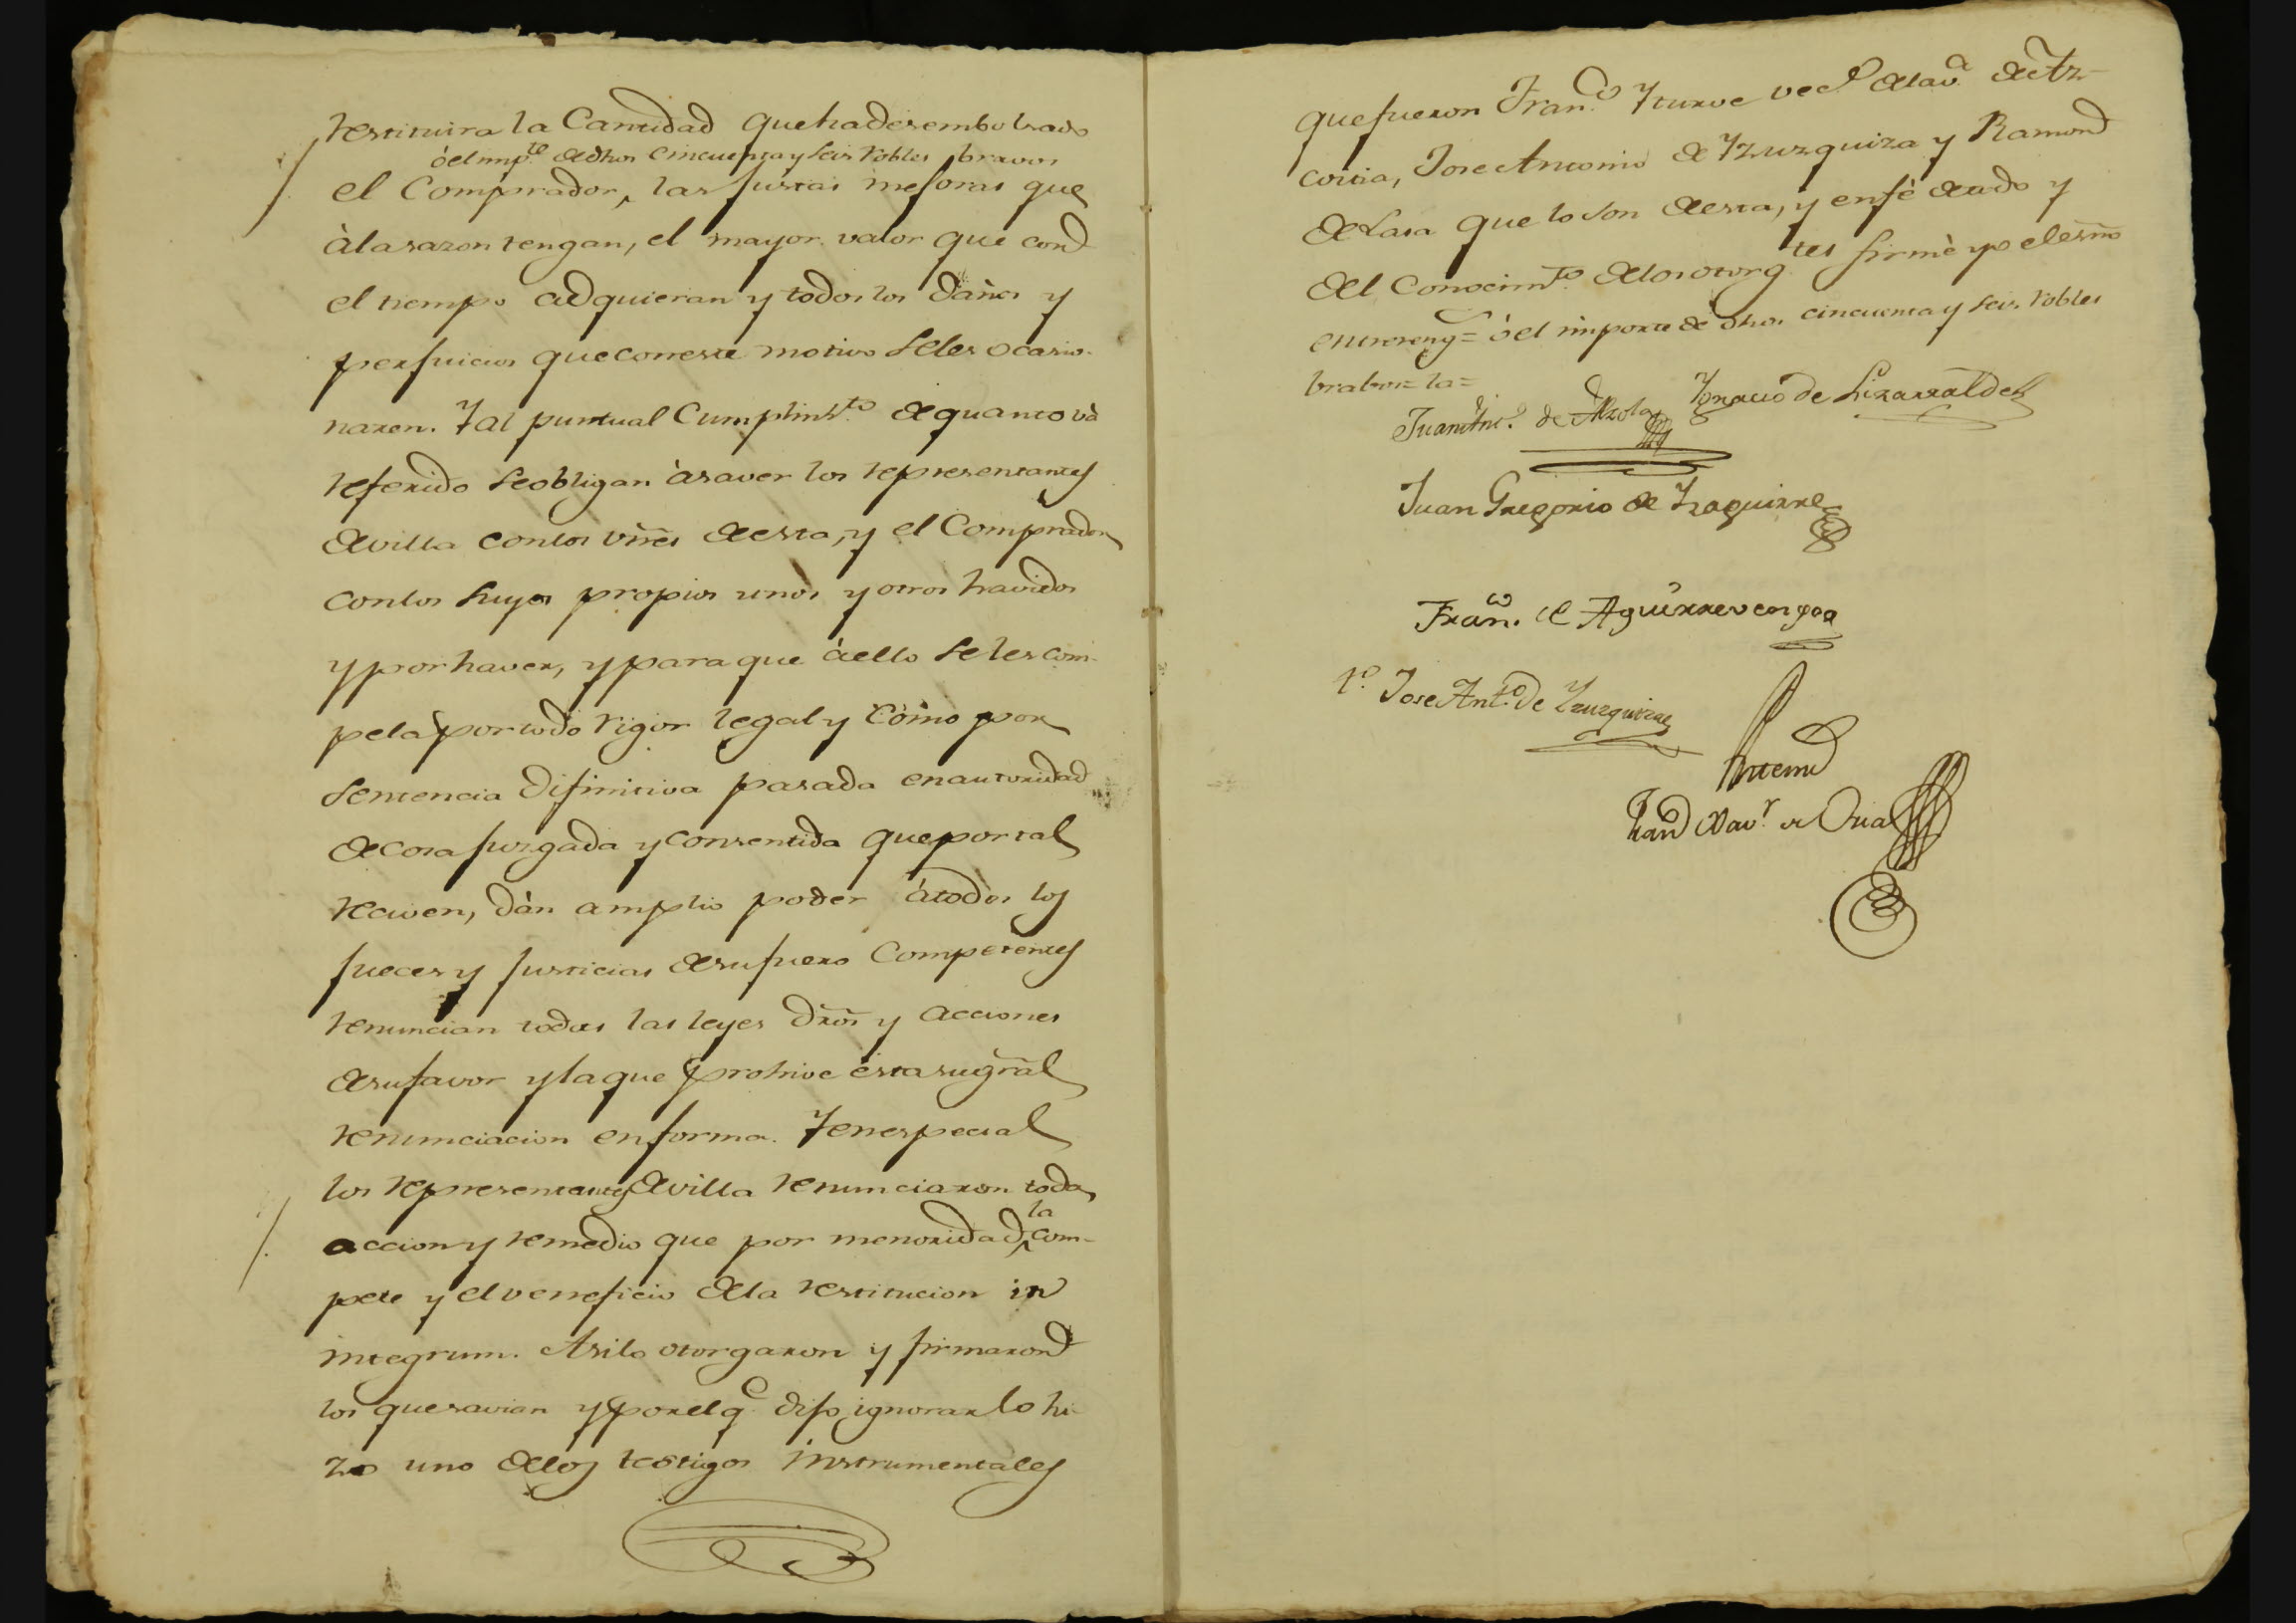 restituira la Cantidad que ha desembolsado
ó el imp.te de dhos cincuenta y seis robles bravos
el Comprador, las justas mejoras que
à la sazon tengan, el mayor valor que con
el tiempo adquieran y todos los daños y
perjuicios que con este motivo se les ocasio-
naren. Y al puntual Cumplim.to de quanto và
referido se obligan à saver los representantes
de villa con los vnes de esta, y el Comprador
con los suyos propios unos y otros havidos
y por haver, y para que à ello se les com-
pela por todo rigor legal y como por
sentencia difinitiva pasada en autoridad
de cosa juzgada y consentida que por tal
reciven, dàn amplio poder à todos los
jueces y justicias de su fuero Competentes
renuncian todas las leyes dros y acciones
de su favor y la que prohive esta su gral
renunciacion en forma. Y en especial
los representantes de villa renunciaron toda
accion y remedio que por menoridad la com-
pete y el veneficio de la restitucion in
integrum. Asi lo otorgaron y firmaron
los que savian y por el q.e dijo ignorar lo hi-
zo uno de los testigos instrumentales
que fueron Fran.co Yturve vec.o de la v.a de Az-
coitia, Jose Antonio de Yzuzquiza y Ramon
de Lasa que lo son de esta, y en fè de todo y
del Conocim.to de los otorg.tes firmè yo el esno
entrereng.s = ò el importe de dhos cincuenta y seis robles
brabos = la =
Juan Ant.o de Alzola
Ygnacio de Lizarralde
Juan Gregorio de Yzaguirre
Fran.co de Aguirrevengoa
t.o Jose Ant.o de Yzuzquiza
Antemi
Juan Xav.r de Oria